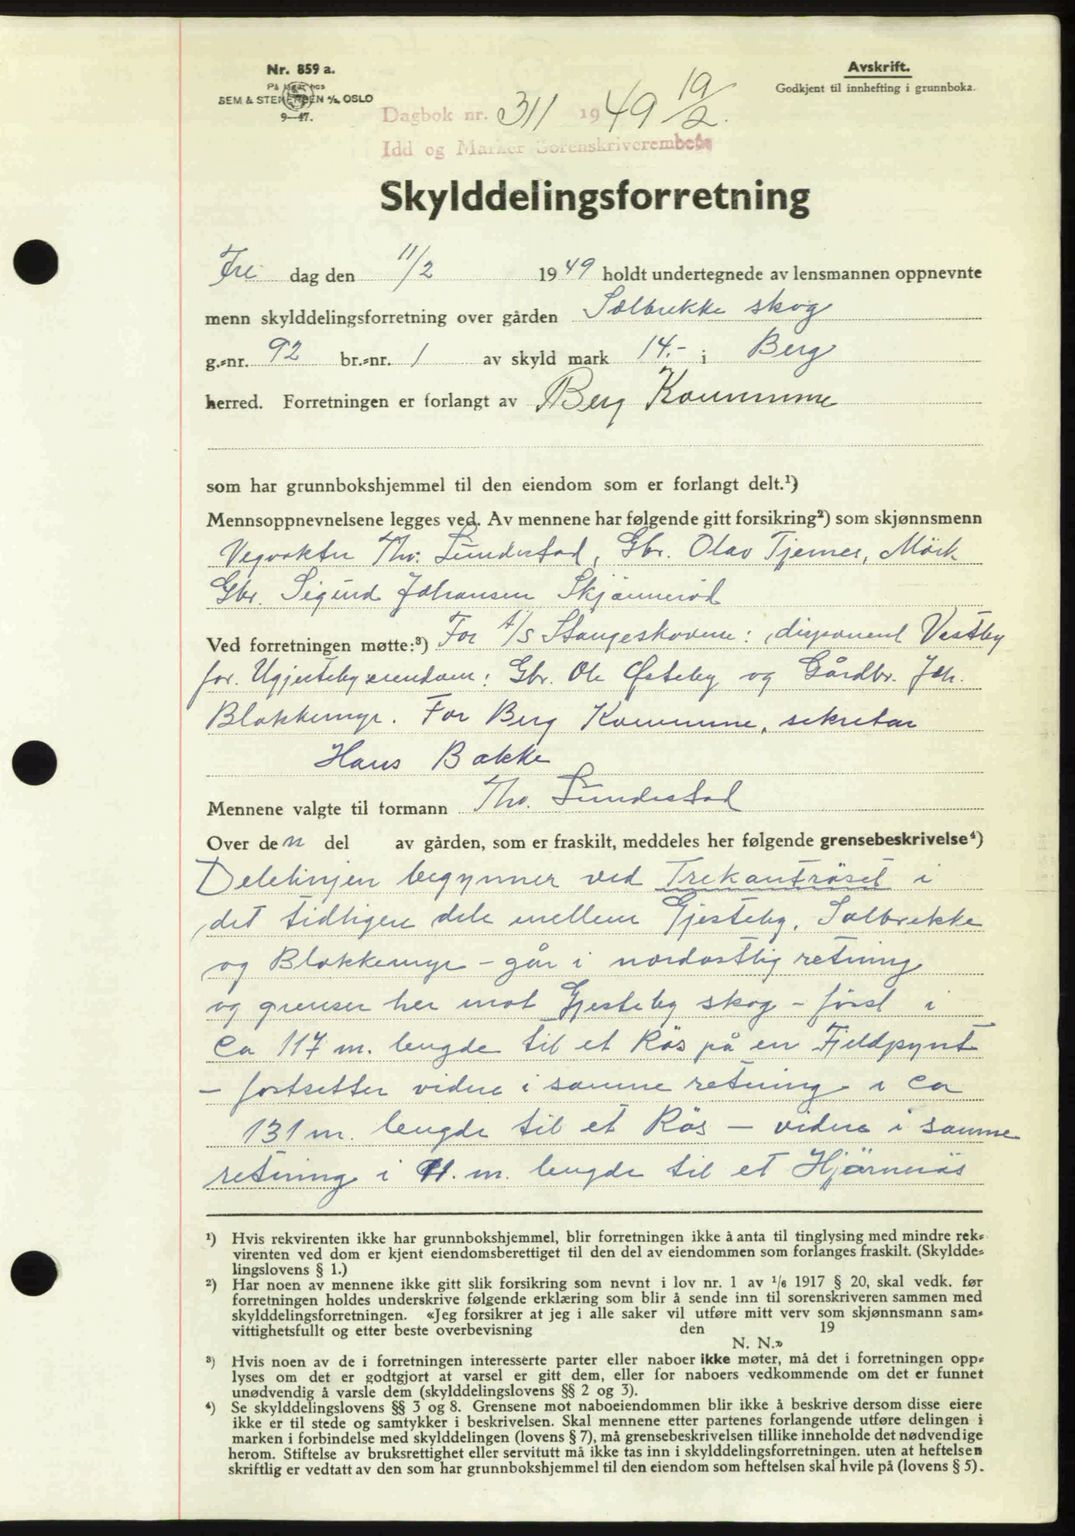 Nr. 859 a.
På lager hos
SEM & STENERSEN A/S, OSLO
9-47.
Avskrift.
Godkjent til innhefting i grunnboka.
Dagbok nr. 311 1949 19/2.
Idd og Marker Sorenskriverembete
Skylddelingsforretning
Fre dag den 11/2 1949 holdt undertegnede av lensmannen oppnevnte
menn skylddelingsforretning over gården Sølbrekke skog
g.-nr. 92 br.-nr. 1 av skyld mark 14.- i Berg
herred. Forretningen er forlangt av Berg Kommune
som har grunnbokshjemmel til den eiendom som er forlangt delt.¹)
Mennsoppnevnelsene legges ved. Av mennene har følgende gitt forsikring²) som skjønnsmenn
Vegvokter Th. Sundestad, Gbr. Olav Tjernes, Mörk
Gbr. Sigurd Johansen Skjønnerød
Ved forretningen møtte:³) For A/S Stangeskovene: disponent Vestby
for Gjesteby eiendom: Gbr. Ole Østeby og Gårdbr. Joh.
Blakkemyr. For Berg Kommune, sekretær
Hans Bakke
Mennene valgte til formann Th. Sundestad
Over den del av gården, som er fraskilt, meddeles her følgende grensebeskrivelse⁴)
Delelinjen begynner ved Trekantröset i
det tidligere dele mellem Gjesteby, Sølbrekke
og Blakkemyr - går i nordøstlig retning
og grenser her mot Gjesteby skog - först i
Ca 117 m. lengde til et Rös på en Fjeldpynt
- fortsetter videre i samme retning i Ca
131 m. lengde til et Rös - videre i samme
retning i 91. m. lengde til et Hjörnerös
¹) Hvis rekvirenten ikke har grunnbokshjemmel, blir forretningen ikke å anta til tinglysing med mindre rek-
virenten ved dom er kjent eiendomsberettiget til den del av eiendommen som forlanges fraskilt. (Skyldde-
lingslovens § 1.)
²) Har noen av mennene ikke gitt slik forsikring som nevnt i lov nr. 1 av 1/6 1917 § 20, skal vedk. før
forretningen holdes underskrive følgende erklæring som blir å sende inn til sorenskriveren sammen med
skylddelingsforretningen. «Jeg forsikrer at jeg i alle saker vil utføre mitt verv som skjønnsmann sam-
vittighetsfullt og etter beste overbevisning den 19
N. N.»
³) Hvis noen av de i forretningen interesserte parter eller naboer ikke møter, må det i forretningen opp-
lyses om det er godtgjort at varsel er gitt dem, eller for naboers vedkommende om det er funnet
unødvendig å varsle dem (skylddelingslovens §§ 2 og 3).
⁴) Se skylddelingslovens §§ 3 og 8. Grensene mot naboeiendommen blir ikke å beskrive dersom disse eiere
ikke er til stede og samtykker i beskrivelsen. Skal mennene etter partenes forlangende utføre delingen i
marken i forbindelse med skylddelingen (lovens § 7), må grensebeskrivelsen tillike inneholde det nødvendige
herom. Stiftelse av bruksrettighet eller servitutt må ikke tas inn i skylddelingsforretningen, uten at heftelsen
skriftlig er vedtatt av den som har grunnbokshjemmel til den eiendom som heftelsen skal hvile på (lovens § 5).